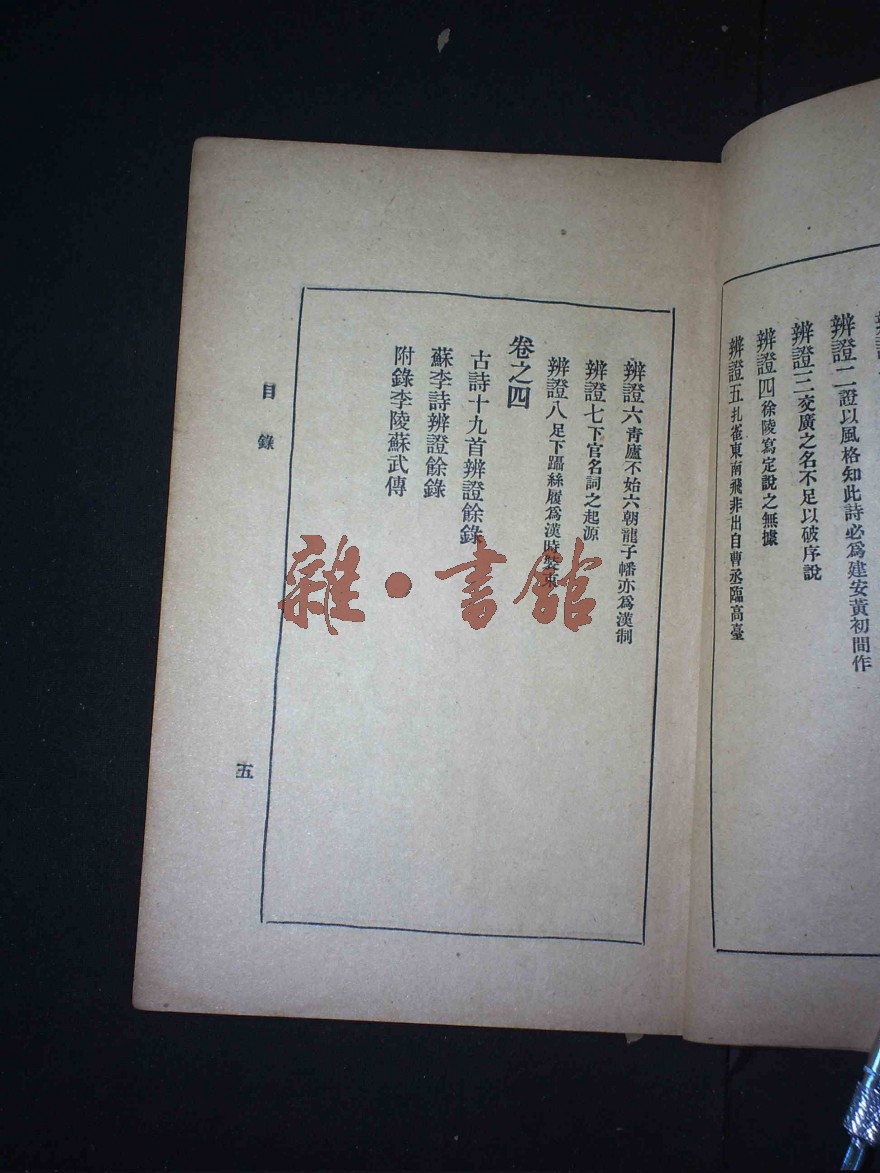 辨證二證以風格知此詩必爲建安黃初間作
辨證三交廣之名不足以破序說
辨證四徐陵寫定說之無據
辨證五孔雀東南飛非出自曹丕臨高臺
辨證六青廬不始六朝龍子幡亦爲漢制
辨證七下官名詞之起源
辨證八足下躡絲履爲漢時裝束
卷之四
古詩十九首辨證餘錄
蘇李詩辨證餘錄
附錄李陵蘇武傳
目錄
五
雜·書舘